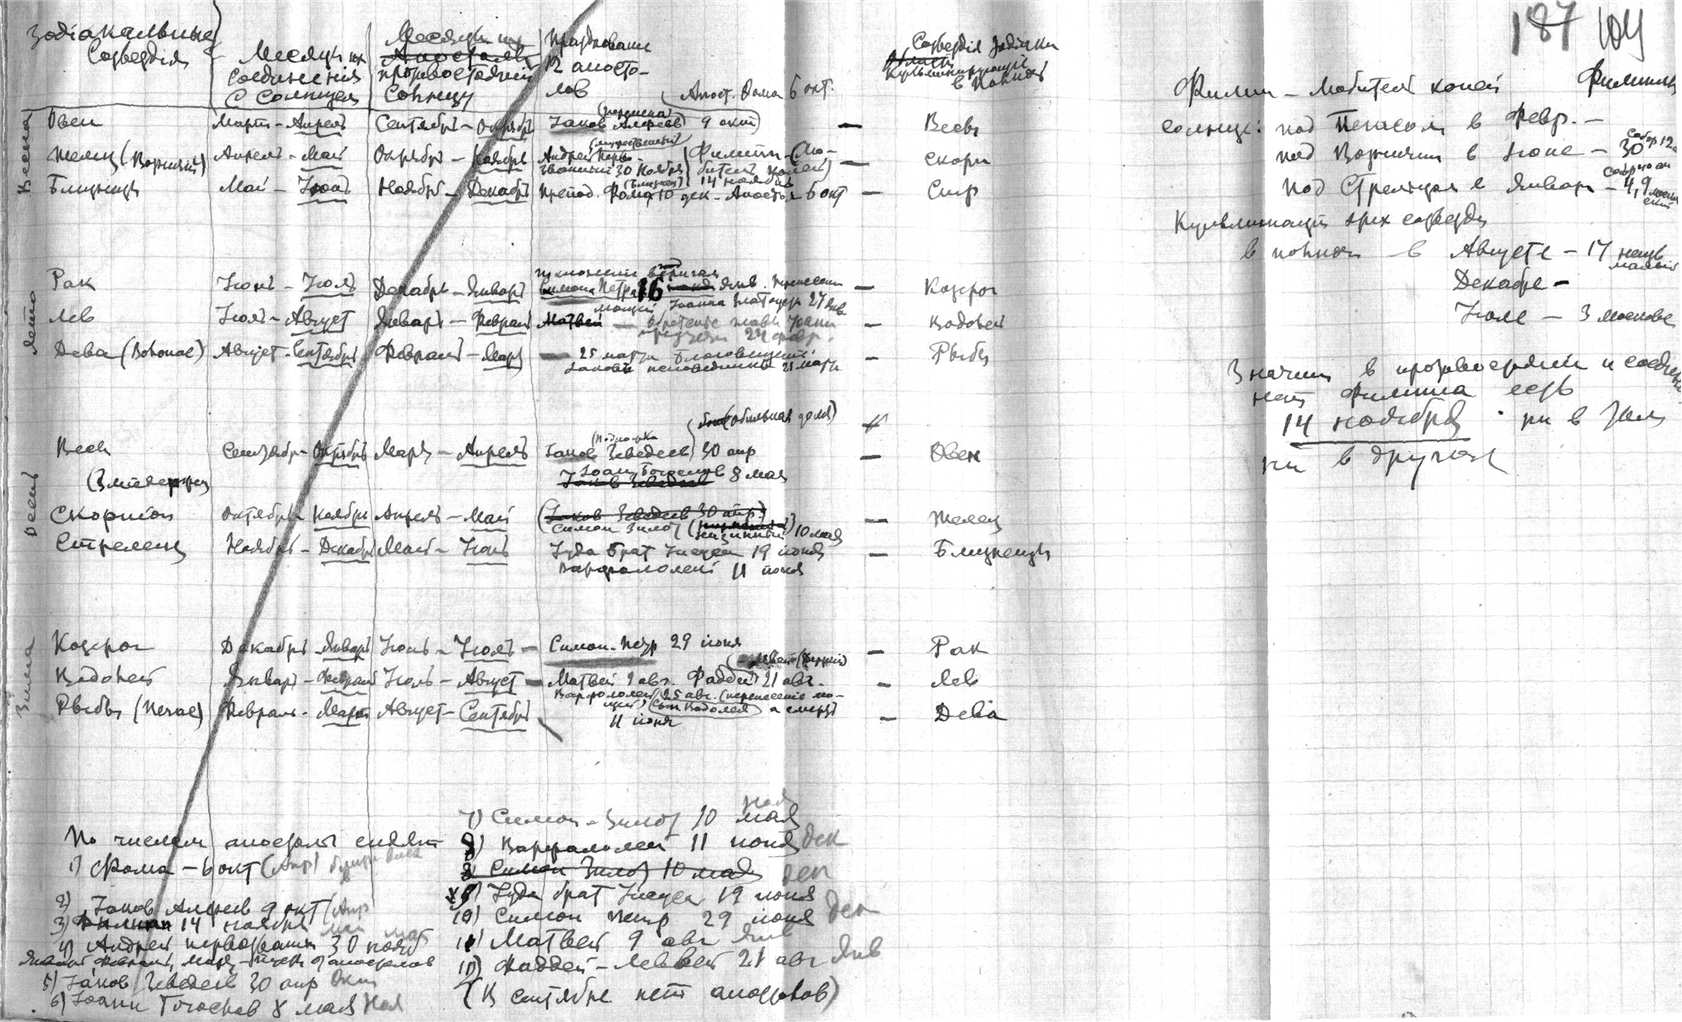 Зодіакальные
Созвездія
Месяцы их
соединенія
с Солнцем
Месяцы их
противостояній
Солнцу
Празднованіе
12 апосто-
лов
Созвездія Зодіака
Кульминирующія
в полночь
187
Весна
Овен
Март - Апрель
Сентябрь - Октябрь
Апост. Фома 6 окт.
Іаков Алфеев 9 окт
—
Весы
Телец (Возничій)
Апрель - Май
Октябрь - Ноябрь
Андрей Перво-
званный 30 Ноября
Филипп (Лю-
битель коней)
14 ноября
—
Скорп
Близнецы
Май - Іюнь
Ноябрь - Декабрь
Фома 10 дек - Апостол 6 окт
—
Стр
Лето
Рак
Іюнь - Іюль
Декабрь - Январь
поклоненіе веригам
Симона Петра 16 Янв. Перенесеніе
мощей Іоанна Златоуста 27 Янв.
—
Козерог
Лев
Іюль - Август
Январь - Февраль
Матвей — обретеніе главы Іоанна
предтечи 24 февр.
—
Водолей
Дева (Волопас)
Август - Сентябрь
Февраль - Март
— 25 марта Благовещеніе.
Іакова исповедника 21 марта
—
Рыбы
Осень
Весы
Сентябрь - Октябрь
Март - Апрель
Іаков Зеведеев 30 апр
—
Овен
Іоанн Богослов 8 мая
Іаков Зеведеев
Скорпіон
Октябрь - Ноябрь
Апрель - Май
(Іаков Зеведеев 30 апр.)
Симон Зилот 10 мая
—
Телец
Стрелец
Ноябрь - Декабрь
Май - Іюнь
Іуда брат Іисуса 19 іюня
Варфоломей 11 іюня
—
Близнецы
Зима
Козерог
Декабрь - Январь
Іюнь - Іюль
— Симон-Петр 29 іюня
—
Рак
Водолей
Январь - Февраль
Іюль - Август
— Матвей 9 авг. Фаддей 21 авг.
—
Лев
Варфоломей (25 авг. (перенесеніе мо-
щей) (Сын Водолея) а смерть
11 іюня
Рыбы (Пегас)
Февраль - Март
Август - Сентябрь
—
Дева
Филип - Любитель коней Филиппы
солнце: под Пегасом в Февр. —
под Возничим в іюне — 30
под Стрельцом в Январе — 4,9
Кульминація трех созвездій
в полночь — в Августе — 17
Декабре —
Іюле — 3
Значит в противостояніи и соедине
нет Филиппа есть
14 ноября. ни в том
ни в другом
По числам апостолы
1) Фома - 6 окт (Апр)
2) Іаков Алфеев 9 окт (Апр
3) Филипп 14 ноября
4) Андрей первозванн 30 нояб
Январь Февраль, Март — нет апостолов
5) Іаков Зеведеев 30 апр Окт
6) Іоанн Богослов 8 мая Ноя
7) Симон - Зилот 10 мая
8) Варфоломей 11 іюня дек
Симон Зилот 10 мая
9) Іуда брат Іисуса 19 іюня
10) Симон Петр 29 іюня Дек
11) Матвей 9 авг Янв
Фаддей - Леввей 21 авг Янв
(В сентябре нет апостолов)